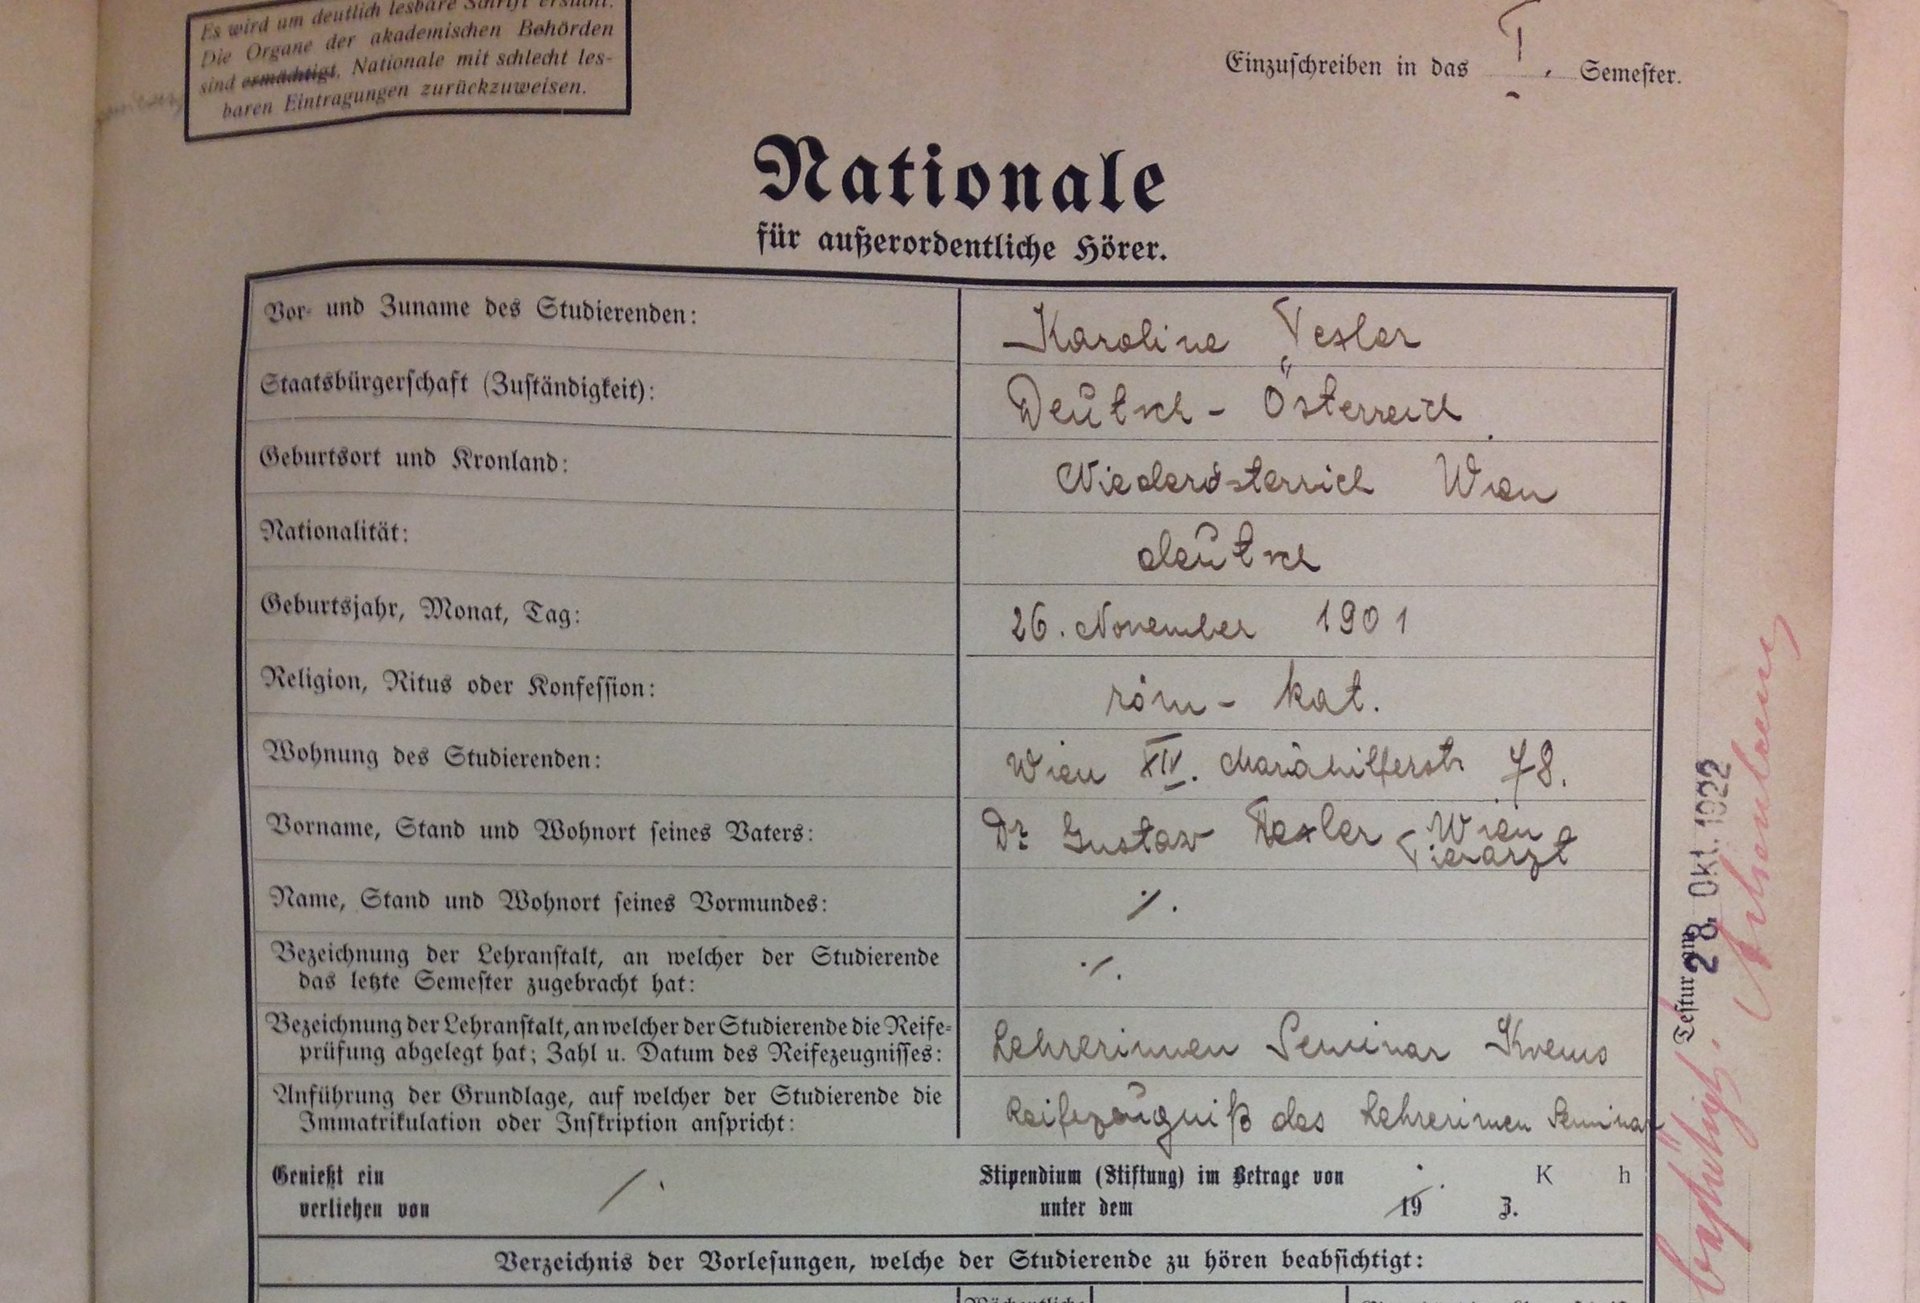 Es wird um deutlich lesbare Schrift ersucht.
Die Organe der akademischen Behörden
sind ermächtigt, Nationale mit schlecht les-
baren Eintragungen zurückzuweisen.
Einzuschreiben in das I. Semester.
Nationale
für außerordentliche Hörer.
Vor- und Zuname des Studierenden: Karoline Texler
Staatsbürgerschaft (Zuständigkeit): Deutsch-Österreich
Geburtsort und Kronland: Niederösterreich Wien
Nationalität: deutsch
Geburtsjahr, Monat, Tag: 26. November 1901
Religion, Ritus oder Konfession: röm-kat.
Wohnung des Studierenden: Wien XIV. Mariahilferstr 78.
Vorname, Stand und Wohnort seines Vaters: Dr Gustav Texler Wien
Tierarzt
Name, Stand und Wohnort seines Vormundes: ./.
Bezeichnung der Lehranstalt, an welcher der Studierende
das letzte Semester zugebracht hat: ./.
Bezeichnung der Lehranstalt, an welcher der Studierende die Reife-
prüfung abgelegt hat; Zahl u. Datum des Reifezeugnisses: Lehrerinnen Seminar Krems
Anführung der Grundlage, auf welcher der Studierende die
Immatrikulation oder Inskription anspricht: Reifezeugniß des Lehrerinnen Seminar
Genießt ein /. Stipendium (Stiftung) im Betrage von K h
verliehen von unter dem 19 Z.
Verzeichnis der Vorlesungen, welche der Studierende zu hören beabsichtigt:
Wöchentliche
Testur am 28. Okt. 1922